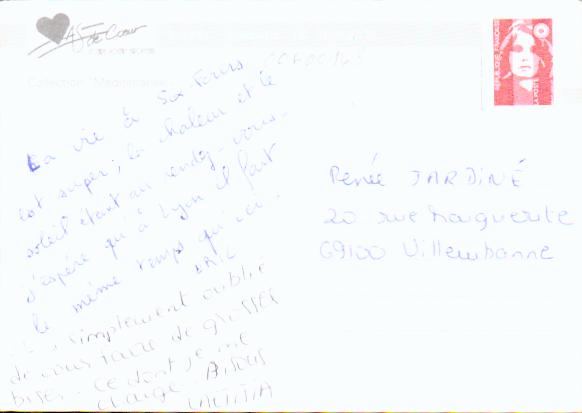 As de Coeur
Collection "Méditerranée"
La vie à Six-Fours
est super; la chaleur et le
soleil étant au rendez-vous.
J'espère qu'à Lyon il fait
le même temps qu'ici.
ERIC
simplement oublié
de vous faire de grosses
bises. Ce dont je me
charge. BISOUS
LAETITIA
REPUBLIQUE FRANÇAISE
LA POSTE
Renée JARDINÉ
20 rue Marguerite
69100 Villeurbanne